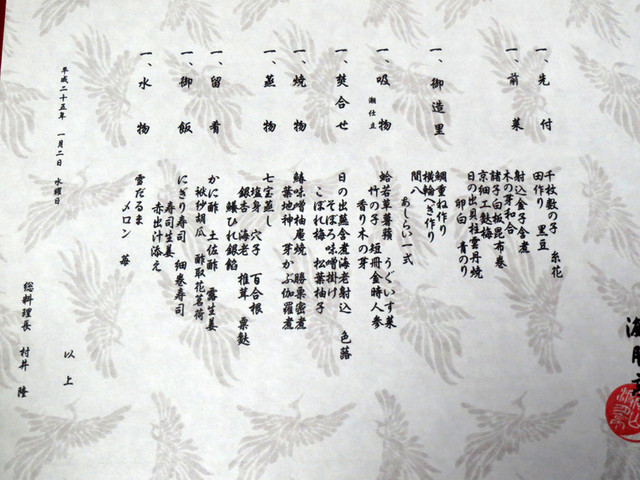 一、先付
千枚数の子 糸花
田作り 黒豆
一、前菜
射込金子含煮
木の芽和合
諸子白板昆布巻
京細工麩梅
日の出貝桂雲丹焼
卵白 青のり
一、御造里
鯛重ね作り
横輪へぎ作り
間八
あしらい一式
一、吸物
潮仕立
蛤若草薯蕷 うぐいす菜
竹の子 短冊金時人参
香り木の芽
一、焚合せ
日の出蕪含煮海老射込 色蕗
そぼろ味噌掛け
こぼれ梅 松葉柚子
一、焼物
鰆味噌柚庵焼 勝栗密煮
葉地神 芽かぶ伽羅煮
一、蒸物
七宝蒸し
塩身 穴子 百合根
銀杏 海老 椎茸 粟麩
鱶ひれ銀餡
一、留肴
かに酢 土佐酢 露生姜
楸砂胡瓜 酢取花茗荷
一、御飯
にぎり寿司 細巻寿司
寿司生姜
赤出汁添え
一、水物
雪だるま
メロン 苺
以上
平成二十五年 一月二日 水曜日
総料理長 村井 隆